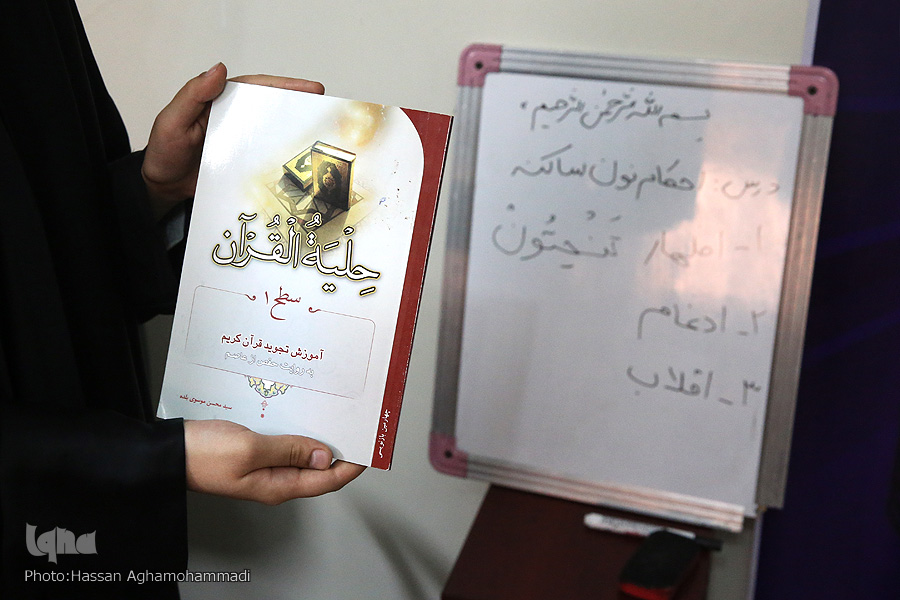 حِلْيَةُ الْقُرْآن
سطح ۱
آموزش تجوید قرآن کریم
به روایت حفص از عاصم
سید محسن موسوی بلده
چهارمین بازنویسی
بسم الله الرحمن الرحیم
درس: احکام نون ساکنه
۱- اظهار تَنْحِتُونْ
۲- ادغام
۳- اقلاب
iqna
Photo:Hassan Aghamohammadi